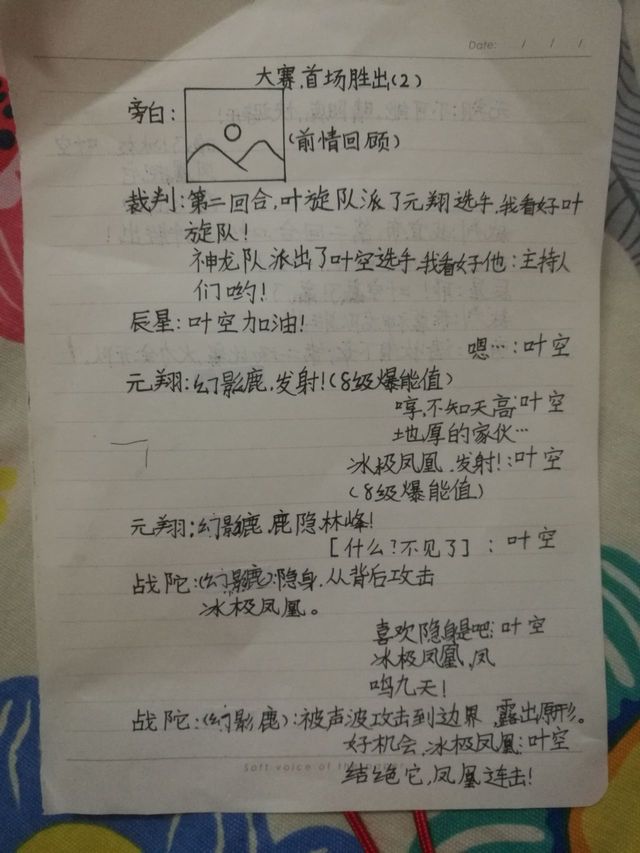 Date: / / /
大赛,首场胜出(2)
旁白:
(前情回顾)
裁判:第二回合,叶旋队派了元翔选手,我看好叶
旋队!
神龙队派出了叶空选手,我看好他:主持人
们哟!
辰星:叶空加油!
嗯…:叶空
元翔:幻影鹿,发射!(8级爆能值)
哼,不知天高:叶空
地厚的家伙…
冰极凤凰,发射!:叶空
(8级爆能值)
元翔:幻影鹿,鹿隐林峰!
[什么?不见了]:叶空
战陀:(幻影鹿):隐身,从背后攻击
冰极凤凰。
喜欢隐身是吧:叶空
冰极凤凰,凤
鸣九天!
战陀:(幻影鹿):被声波攻击到边界,露出原形。
好机会,冰极凤凰:叶空
Soft voice of th
结绝它,凤凰连击!